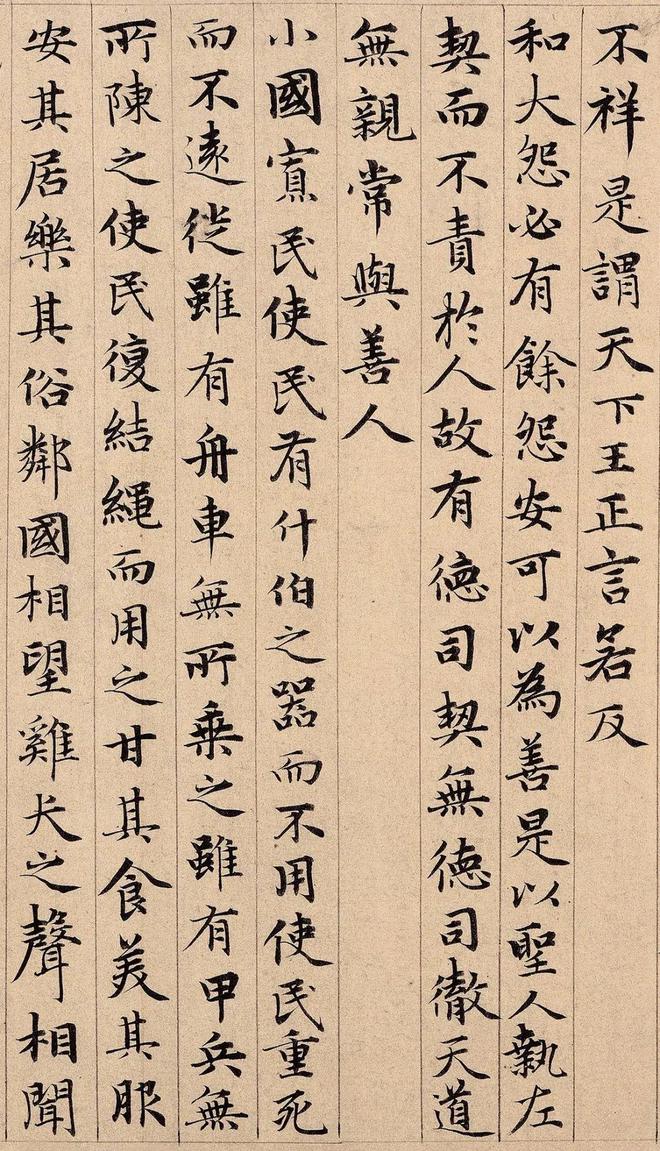 不祥是謂天下王正言若反
和大怨必有餘怨安可以為善是以聖人執左
契而不責於人故有德司契無德司徹天道
無親常與善人
小國寡民使民有什伯之器而不用使民重死
而不遠徙雖有舟車無所乗之雖有甲兵無
所陳之使民復結繩而用之甘其食美其服
安其居樂其俗鄰國相望雞犬之聲相聞